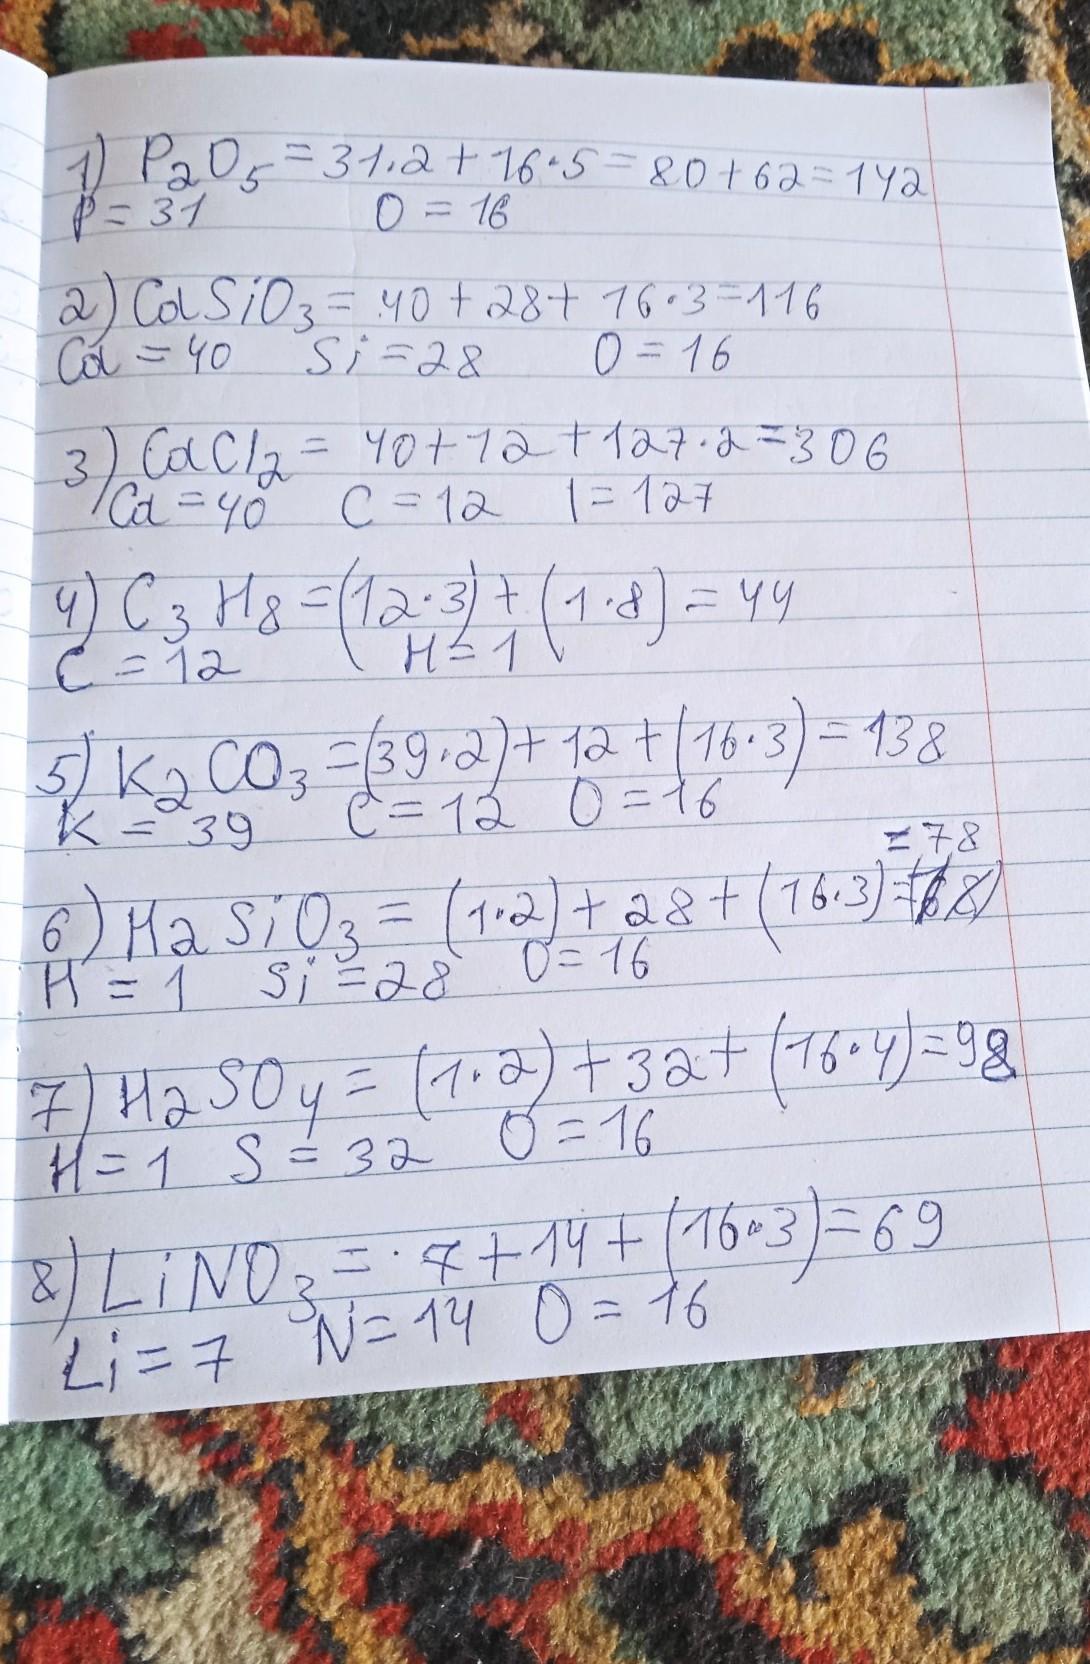 1) P₂O₅ = 31·2 + 16·5 = 80 + 62 = 142
P = 31 O = 16
2) CaSiO₃ = 40 + 28 + 16·3 = 116
Ca = 40 Si = 28 O = 16
3) CaCl₂ = 40 + 12 + 127·2 = 306
Ca = 40 C = 12 I = 127
4) C₃H₈ = (12·3) + (1·8) = 44
C = 12 H = 1
5) K₂CO₃ = (39·2) + 12 + (16·3) = 138
K = 39 C = 12 O = 16
= 78
6) H₂SiO₃ = (1·2) + 28 + (16·3) =
H = 1 Si = 28 O = 16
7) H₂SO₄ = (1·2) + 32 + (16·4) = 98
H = 1 S = 32 O = 16
8) LiNO₃ = 7 + 14 + (16·3) = 69
Li = 7 N = 14 O = 16